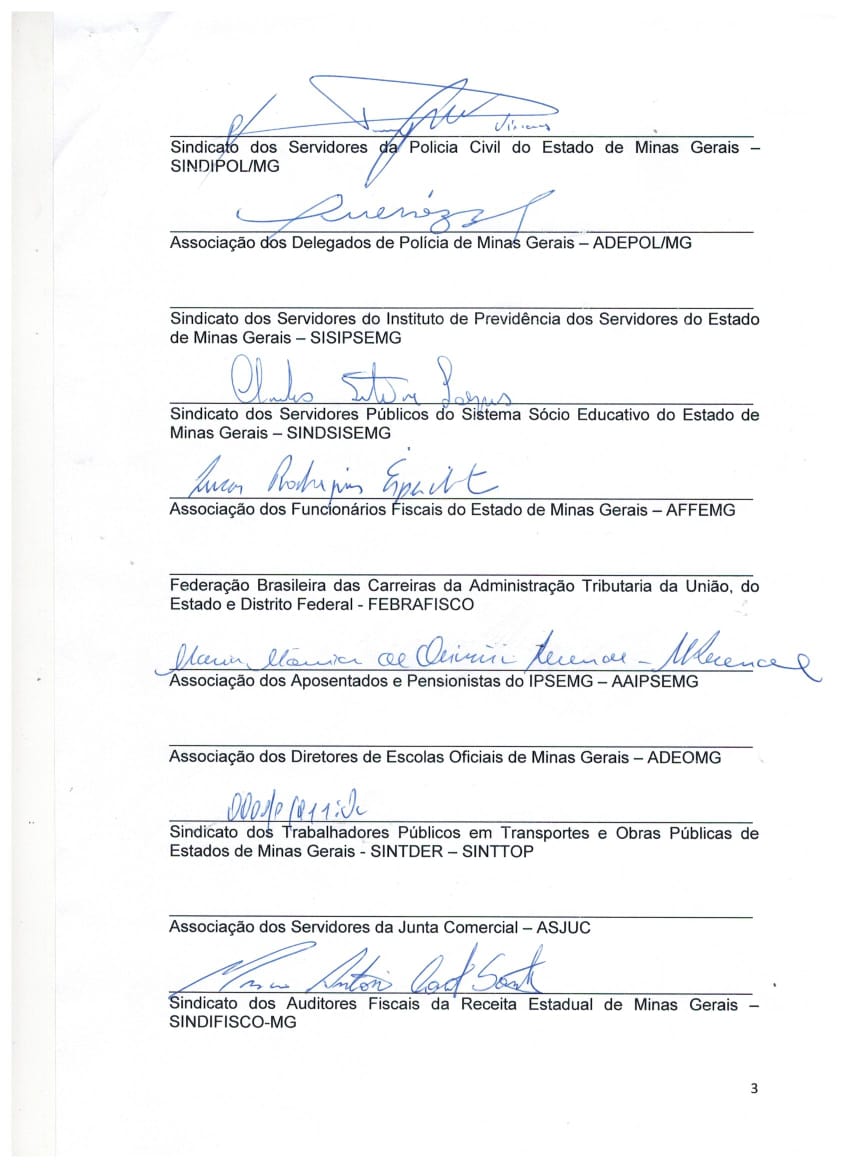 Sindicato dos Servidores da Policia Civil do Estado de Minas Gerais –
SINDIPOL/MG
Associação dos Delegados de Polícia de Minas Gerais – ADEPOL/MG
Sindicato dos Servidores do Instituto de Previdência dos Servidores do Estado
de Minas Gerais – SISIPSEMG
Sindicato dos Servidores Públicos do Sistema Sócio Educativo do Estado de
Minas Gerais – SINDSISEMG
Lucas Rodrigues Espechit
Associação dos Funcionários Fiscais do Estado de Minas Gerais – AFFEMG
Federação Brasileira das Carreiras da Administração Tributaria da União, do
Estado e Distrito Federal - FEBRAFISCO
Maria Mônica de Oliveira Rezende -
Associação dos Aposentados e Pensionistas do IPSEMG – AAIPSEMG
Associação dos Diretores de Escolas Oficiais de Minas Gerais – ADEOMG
Sindicato dos Trabalhadores Públicos em Transportes e Obras Públicas de
Estados de Minas Gerais - SINTDER – SINTTOP
Associação dos Servidores da Junta Comercial – ASJUC
Antônio
Sindicato dos Auditores Fiscais da Receita Estadual de Minas Gerais –
SINDIFISCO-MG
3